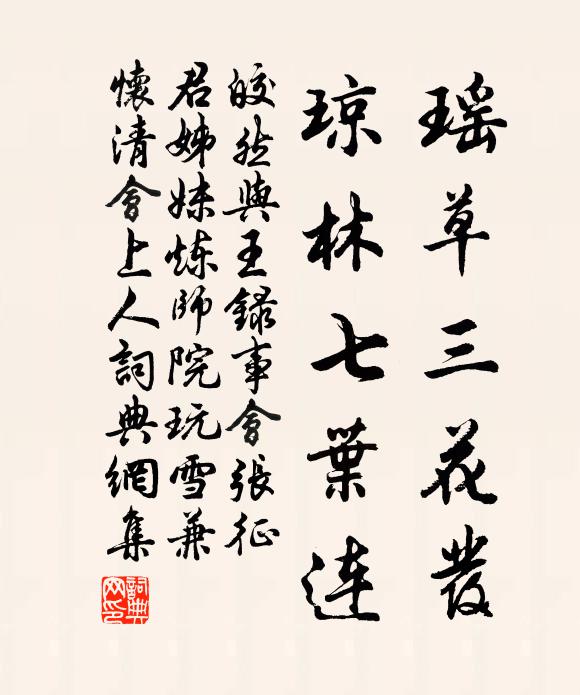 瑶草三花發
琼林七葉连
皎然與王録事會張征
君姊妹炼師院玩雪兼
懷清會上人詞典網集
詞典網印